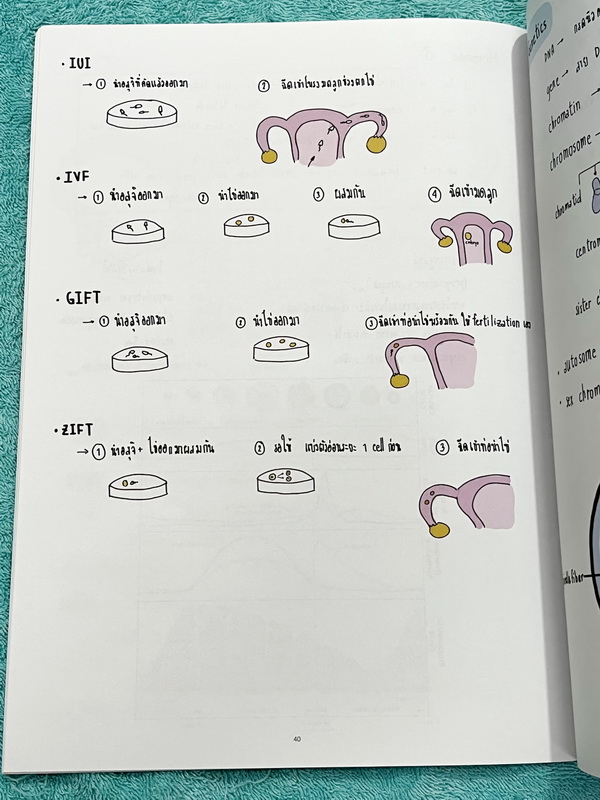 • IUI
→ ① นำอสุจิที่คัดแล้วออกมา ② ฉีดเข้าโพรงมดลูกช่วงตกไข่
• IVF
→ ① นำอสุจิออกมา ② นำไข่ออกมา ③ ผสมกัน ④ ฉีดเข้ามดลูก
embryo
• GIFT
→ ① นำอสุจิออกมา ② นำไข่ออกมา ③ ฉีดเข้าท่อนำไข่พร้อมกัน ให้ fertilization เอง
• ZIFT
→ ① นำอสุจิ + ไข่ออกมาผสมกัน ② รอให้ แบ่งตัวอ่อนระยะ 1 cell ก่อน ③ ฉีดเข้าท่อนำไข่
40
DNA →
gene → สาย D
chromatin →
chromosome →
chromatid
centrom
sister c
• autosome
• sex chrom